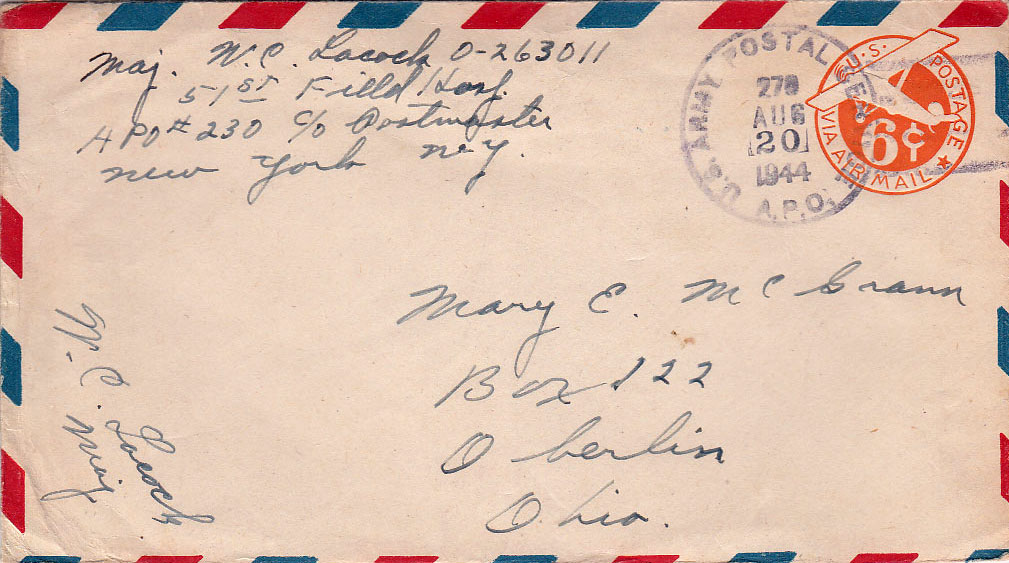 Maj. W. C. Lacock O-263011
51st Field Hosp.
APO# 230 c/o Postmaster
New York N.Y.
U.S. ARMY POSTAL SERVICE
278
AUG
20
1944
A.P.O.
U.S. POSTAGE
6¢
VIA AIR MAIL
Mary E. McGrann
Box 122
Oberlin
Ohio.
W. C. Lacock
Maj